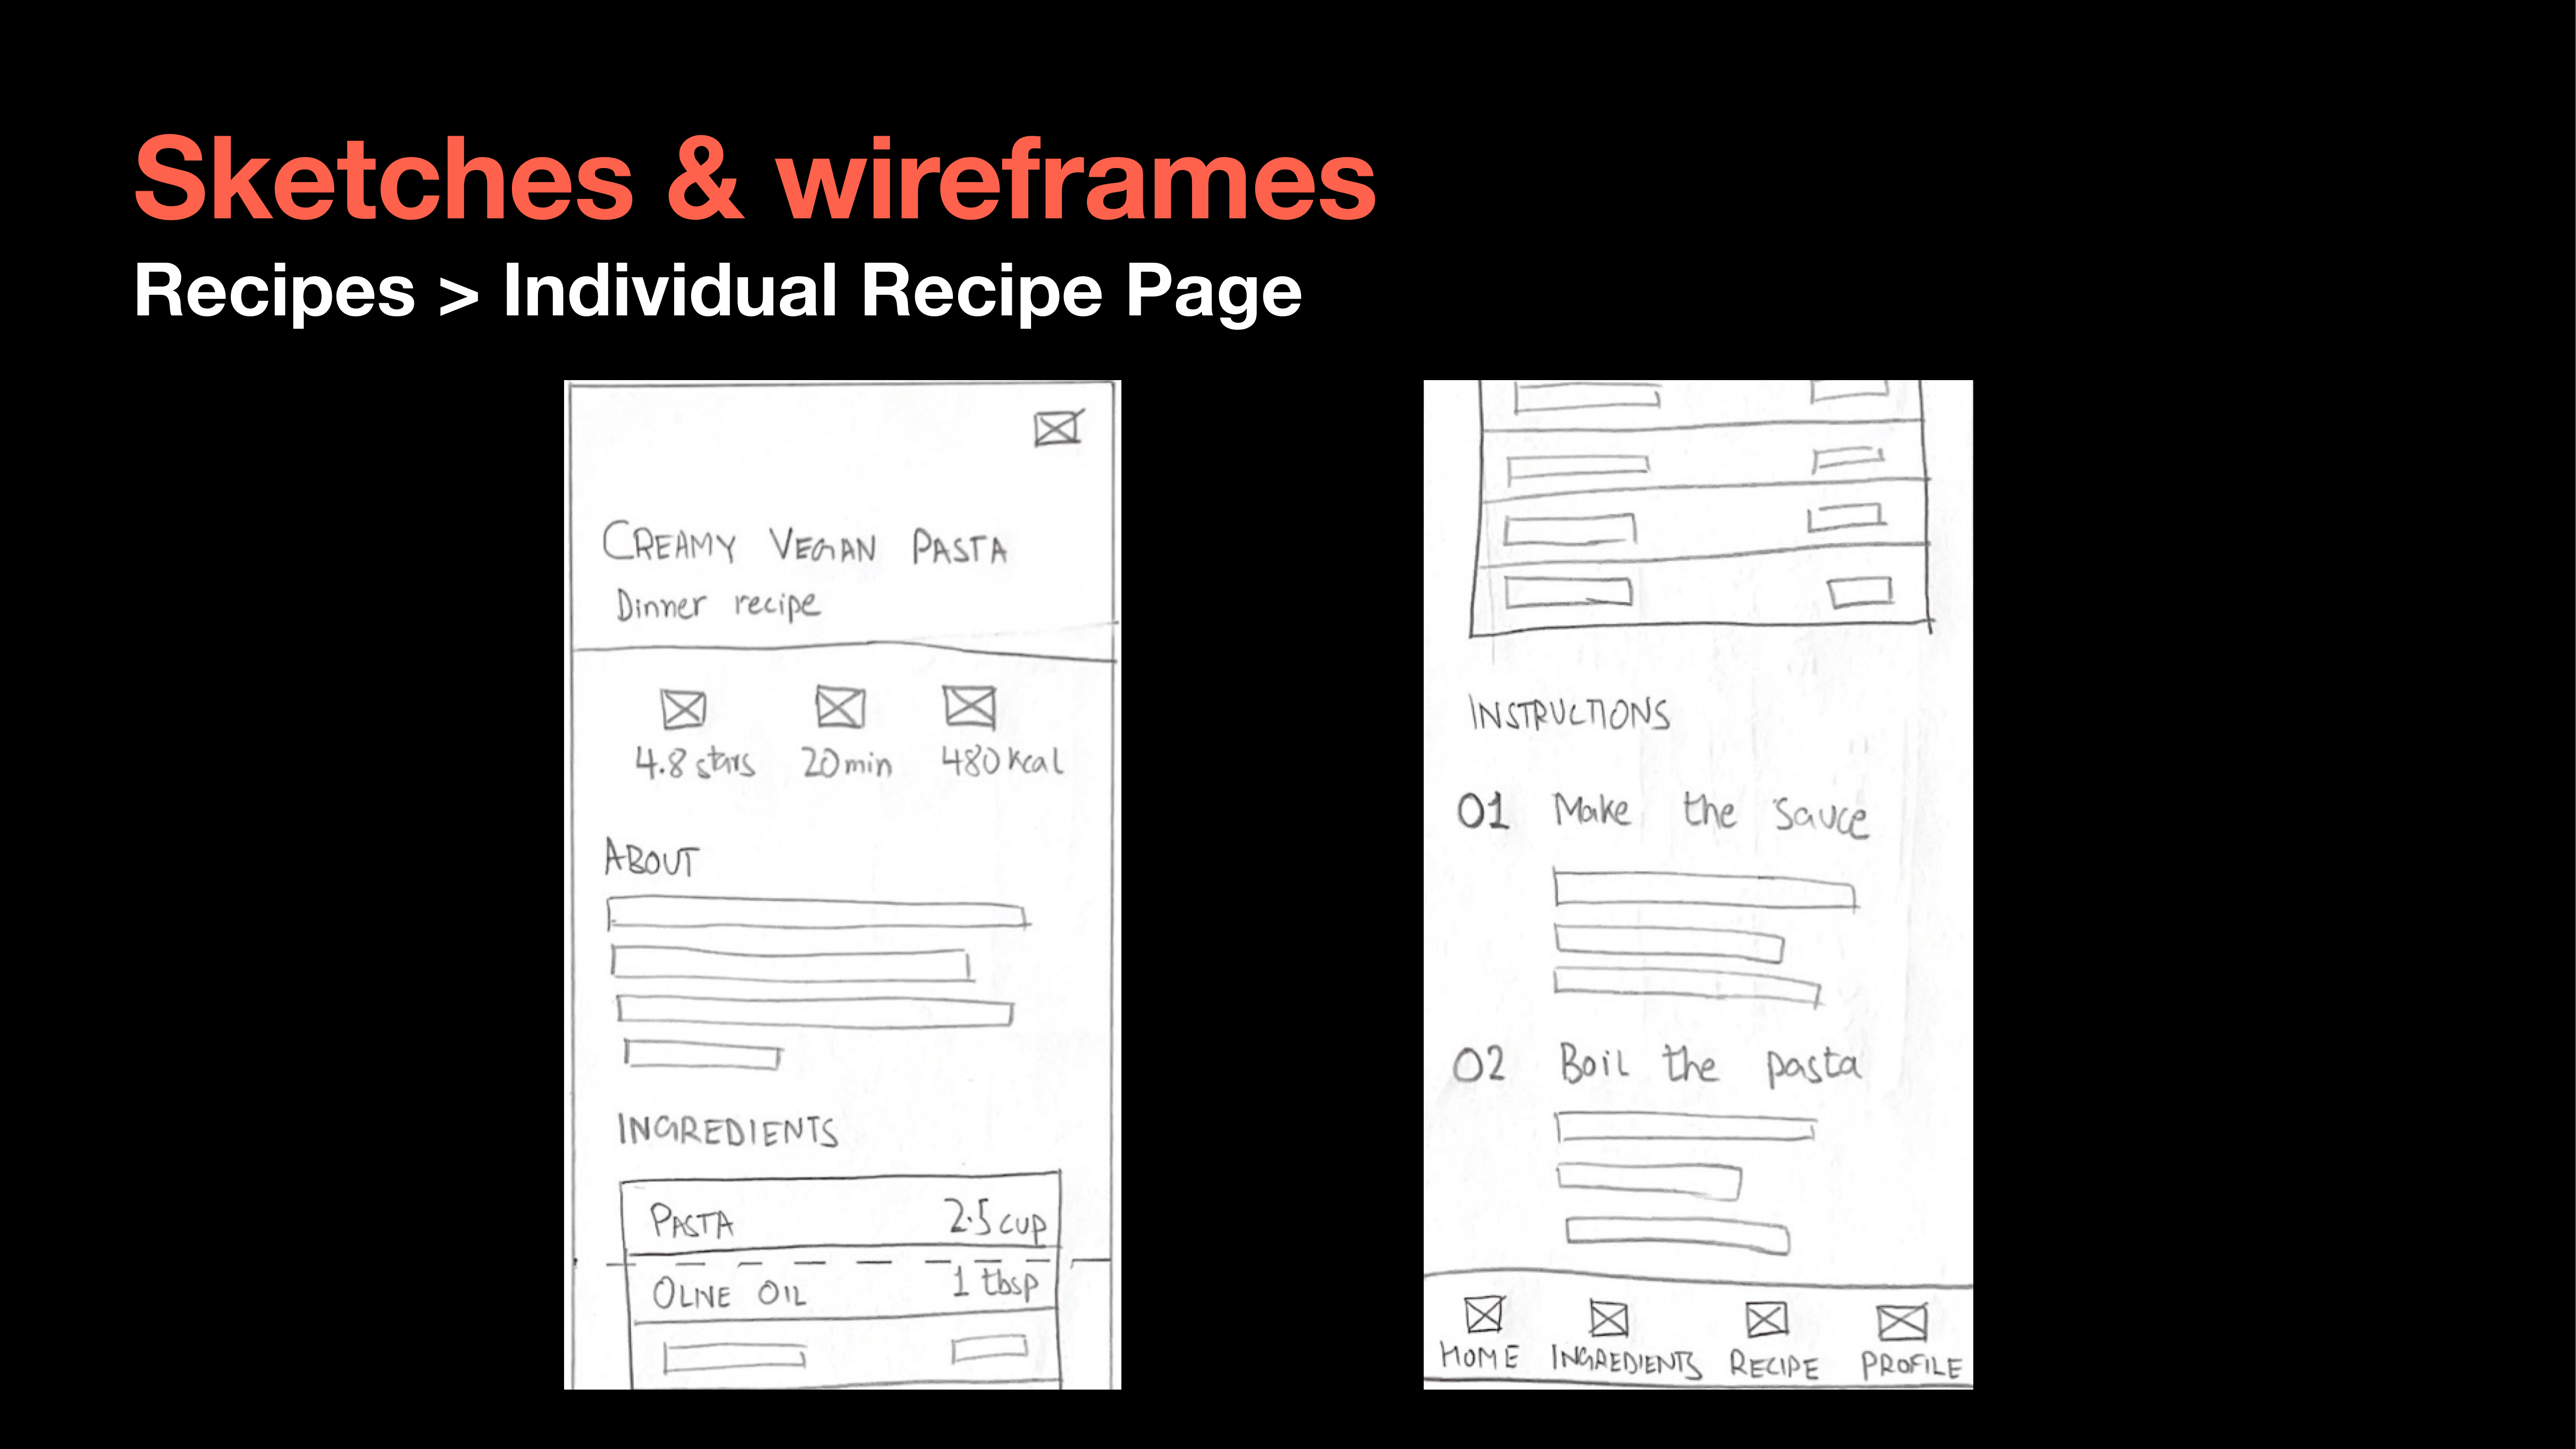 Sketches & wireframes
Recipes > Individual Recipe Page
CREAMY VEGAN PASTA
Dinner recipe
4.8 stars 20min 480 kcal
ABOUT
INGREDIENTS
PASTA 2.5 cup
OLIVE OIL 1 tbsp
INSTRUCTIONS
01 Make the sauce
02 Boil the pasta
HOME INGREDIENTS RECIPE PROFILE